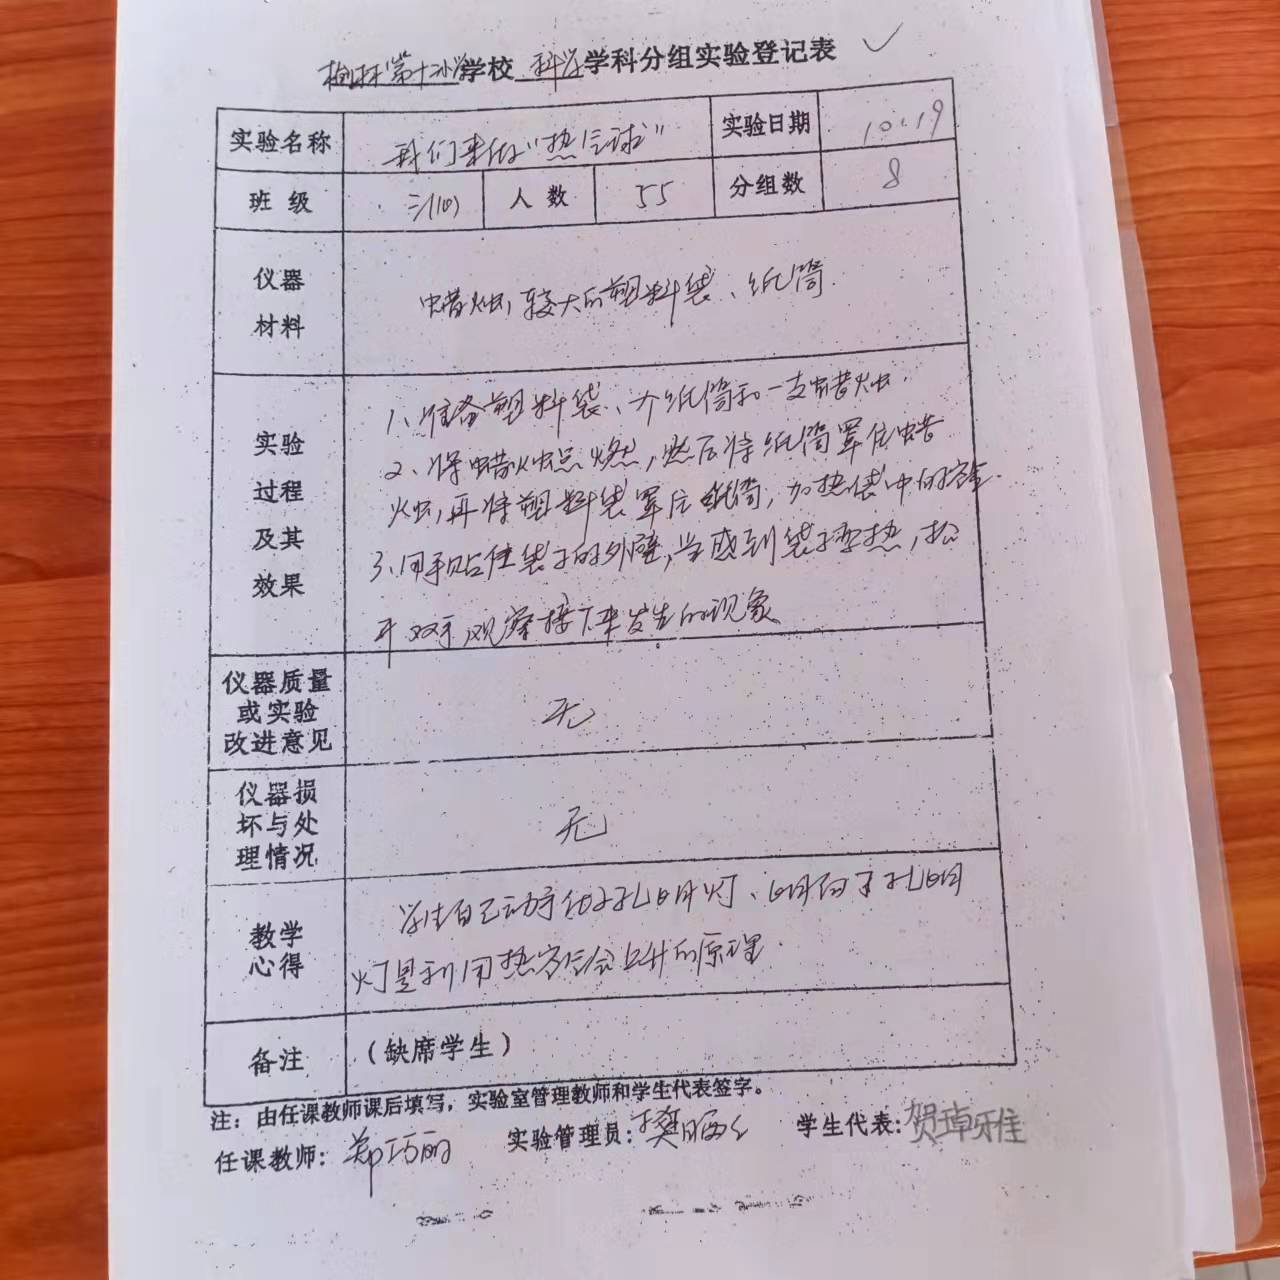 榆林第十二小学学校 科学学科分组实验登记表
实验名称 我们来做“热气球” 实验日期 10.19
班级 三(10) 人数 55 分组数 8
仪器材料 蜡烛,较大的塑料袋、纸筒.
实验过程及其效果
1、准备塑料袋、个纸筒和一支蜡烛.
2、将蜡烛点燃,然后将纸筒罩住蜡
烛,再将塑料袋罩住纸筒,加热袋中的空气.
3、用手贴住袋子的外壁,当感到袋子变热,松
开双手,观察接下来发生的现象
仪器质量或实验改进意见 无
仪器损坏与处理情况 无
教学心得 学生自己动手做了孔明灯、明白了孔明
灯是利用热空气会上升的原理.
备注 (缺席学生)
注:由任课教师课后填写,实验室管理教师和学生代表签字。
任课教师: 郑巧丽 实验管理员: 学生代表: 贺雅